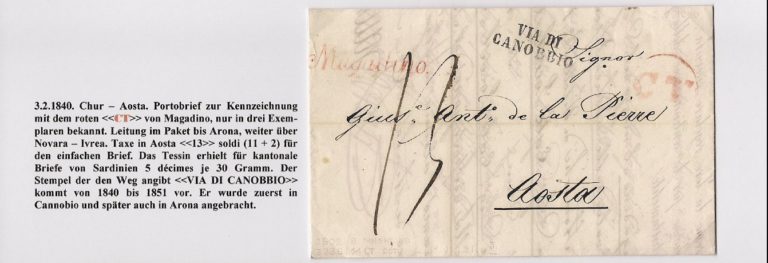 3.2.1840. Chur – Aosta. Portobrief zur Kennzeichnung
mit dem roten <<CT>> von Magadino, nur in drei Exem-
plaren bekannt. Leitung im Paket bis Arona, weiter über
Novara – Ivrea. Taxe in Aosta <<13>> soldi (11 + 2) für
den einfachen Brief. Das Tessin erhielt für kantonale
Briefe von Sardinien 5 décimes je 30 Gramm. Der
Stempel der den Weg angibt <<VIA DI CANOBBIO>>
kommt von 1840 bis 1851 vor. Er wurde zuerst in
Cannobio und später auch in Arona angebracht.
VIA DI
CANOBBIO
Magadino.
Signor
CT
13
Gius.e Ant.o de la Pierre
Aosta